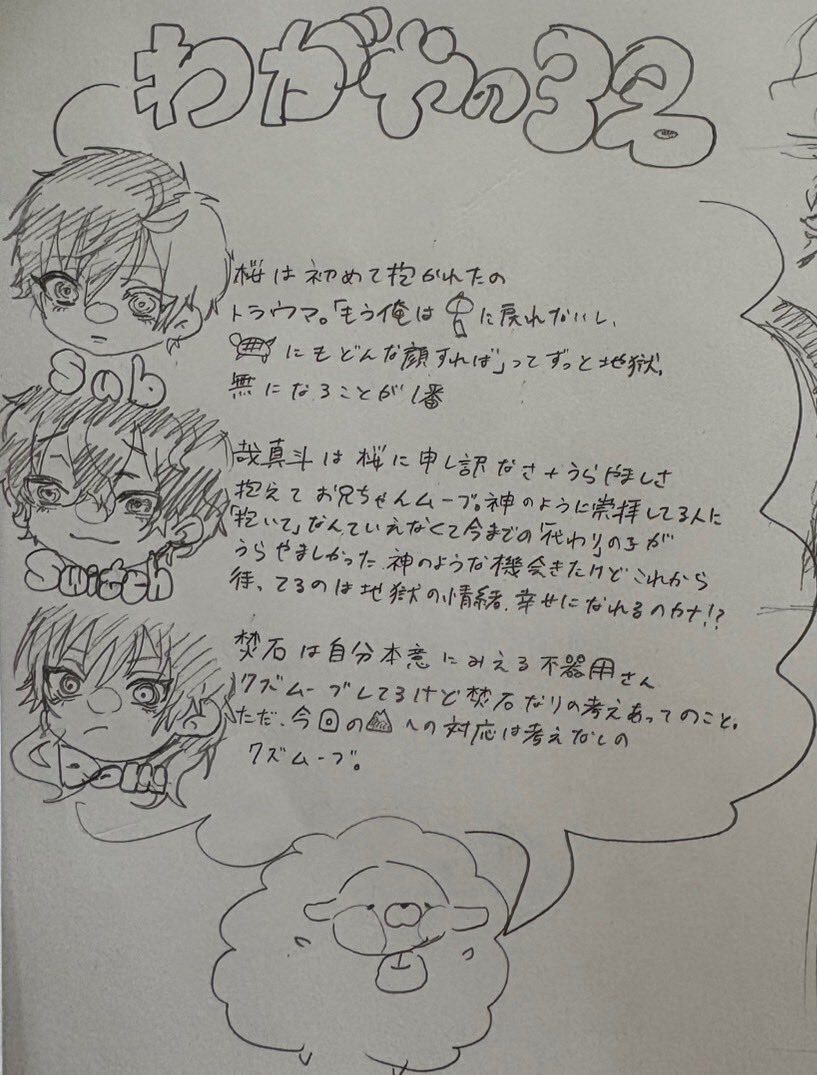 わがやの3名
桜は初めて抱かれたの
トラウマ。「もう俺は に戻れないし、
にもどんな顔すれば」ってずっと地獄。
無になることが1番
Sub
哉真斗は桜に申し訳なさ+うらやましさ
抱えてお兄ちゃんムーブ。神のように崇拝してる人に
「抱いて」なんていえなくて今までの「代わり」の子が
うらやましかった。神のような機会きたけどこれから
待ってるのは地獄の情緒。幸せになれるのカナ!?
Switch
焚石は自分本意にみえる不器用さん
クズムーブしてるけど焚石なりの考えあってのこと。
ただ、今回の への対応は考えなしの
クズムーブ。
Dom